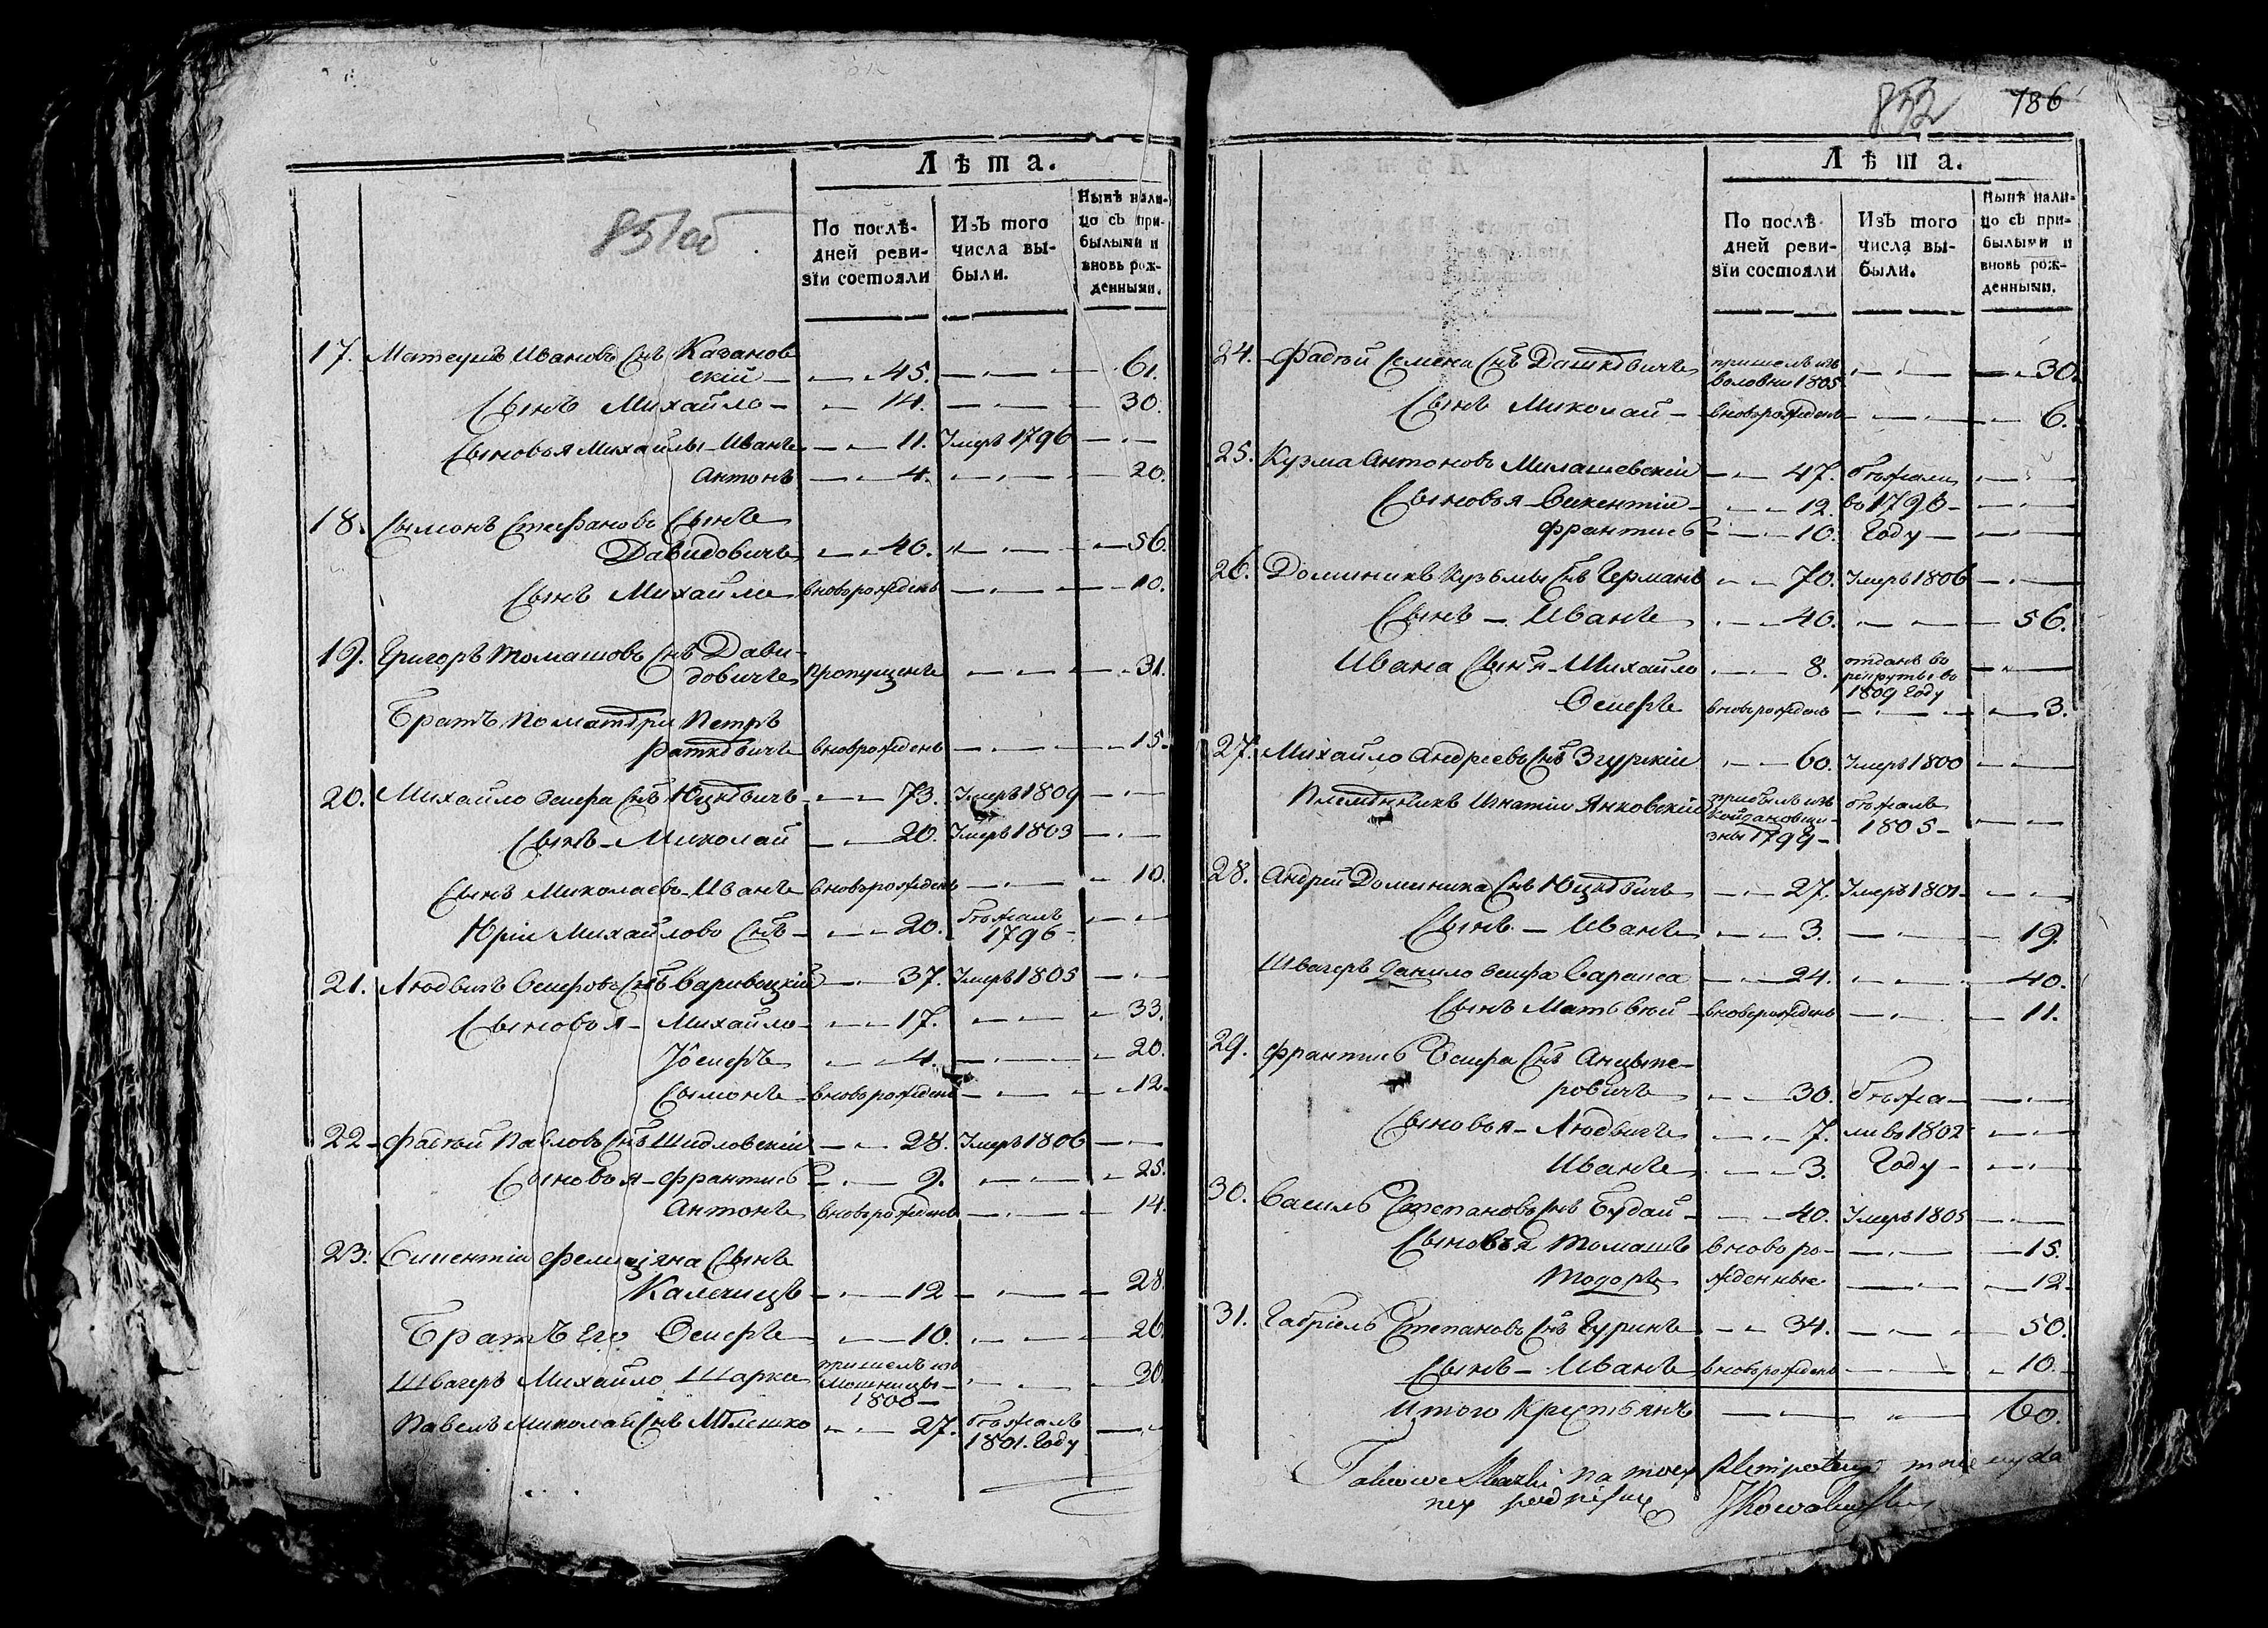 851об
Лѣта.
По послѣ-
дней реви-
зіи состояли
Изъ того
числа вы-
были.
Нынѣ нали-
цо съ при-
былыми и
вновь рож-
денными.
17. Матеушъ Ивановъ Снъ Казанов
скій — 45. — 61.
Сынъ Михайло — 14. — 30.
Сыновья Михайлы Иванъ — 11. Умеръ 1796 —
Антонъ — 4. — 20.
18. Сымонъ Стефановъ Сынъ
Давидовичъ — 40. — 56.
Сынъ Михайло вновьрожденъ — 10.
19. Григоръ Томашовъ Снъ Дави-
довичъ пропущенъ — 31.
Братъ по матери Петръ
Раткевичъ вновьрожденъ — 15.
20. Михайло Осифа Снъ Юцкевичъ — 73. Умеръ 1809 —
Сынъ Миколай — 20. Умеръ 1803 —
Сынъ Миколаевъ Иванъ вновьрожденъ — 10.
Юрій Михайловъ Снъ — 20. бѣжалъ
1796 —
21. Людвигъ Осифовъ Снъ — 37. Умеръ 1805 —
Сыновья Михайло — 17. — 33.
Іосифъ — 4. — 20.
Сымонъ вновьрожденъ — 12.
22. Фадѣй Павловъ Снъ Шидловскій — 28. Умеръ 1806 —
Сыновья Францишъ — 9. — 25.
Антонъ вновьрожденъ — 14.
23. Фелиціяна Сынъ
— 12 — 28.
Братъ Его Осифъ — 10. — 26.
Швагеръ Михайло Шарка пришелъ изъ — 30.
1800 —
Павелъ Миколая Снъ — 27. бѣжалъ
1801. Году
852 186
Лѣта.
По послѣ-
дней реви-
зіи состояли
Изъ того
числа вы-
были.
Нынѣ нали-
цо съ при-
былыми и
вновь рож-
денными.
24. Фадѣй Семена Снъ Дашкевичъ пришелъ изъ — 30.
1805
Сынъ Миколай вновьрожденъ — 6.
25. Кузма Антоновъ Милашевскій — 47. бѣжали
Сыновья Викентій — 12. во 1796 —
Францишъ — 10. Году —
26. Доминикъ Кузьмы Снъ Германъ — 70. Умеръ 1806 —
Сынъ — Иванъ — 40. — 56.
Ивана Сынъ Михайло — 8. отданъ во
рекруты во
1809 Году
Осифъ вновьрожденъ — 3.
27. Михайло Андреевъ Снъ Згурскій — 60. Умеръ 1800 —
Племянникъ Игнатій Янковскій прибылъ изъ бѣжалъ
Койдановщи- 1805 —
зны 1799 —
28. Андрей Доминика Снъ Юцкевичъ — 27. Умеръ 1801 —
Сынъ — Иванъ — 3. — 19.
Швагеръ Данило Осифа — 24. — 40.
Сынъ Матьвей вновьрожденъ — 11.
29. Францишъ Осифа Снъ Анцыпе-
ровичъ — 30. бѣжа-
Сыновья Людвигъ — 7. ли во 1802
Иванъ — 3. Году —
30. Василь Степановъ Снъ Будай — 40. Умеръ 1805 —
Сыновья Томашъ вновь ро- — 15.
Тодоръ жденные — 12
31. Габріель Степановъ Снъ Гуринъ — 34. — 50.
Сынъ — Иванъ вновьрожденъ — 10.
Итого Крестьянъ — 60.
Takowe Skazki na mocy Plenipotencyi mnie wyda
ney podpisuię